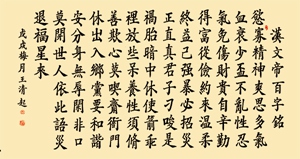 漢文帝百字銘
慾寡精神爽思多氣
血衰少盃不亂性忍
氣免傷財貴自辛勤
得富從儉約來溫柔
終益己強暴必招災
正直真君子刁唆是
禍胎暗中休使箭乖
裏放些呆養性須修
善欺心莫喫齋衙門
休出入鄉黨要和諧
安分身無辱閒非口
莫開世人依此語災
退福星來
戊戌梅月王清起